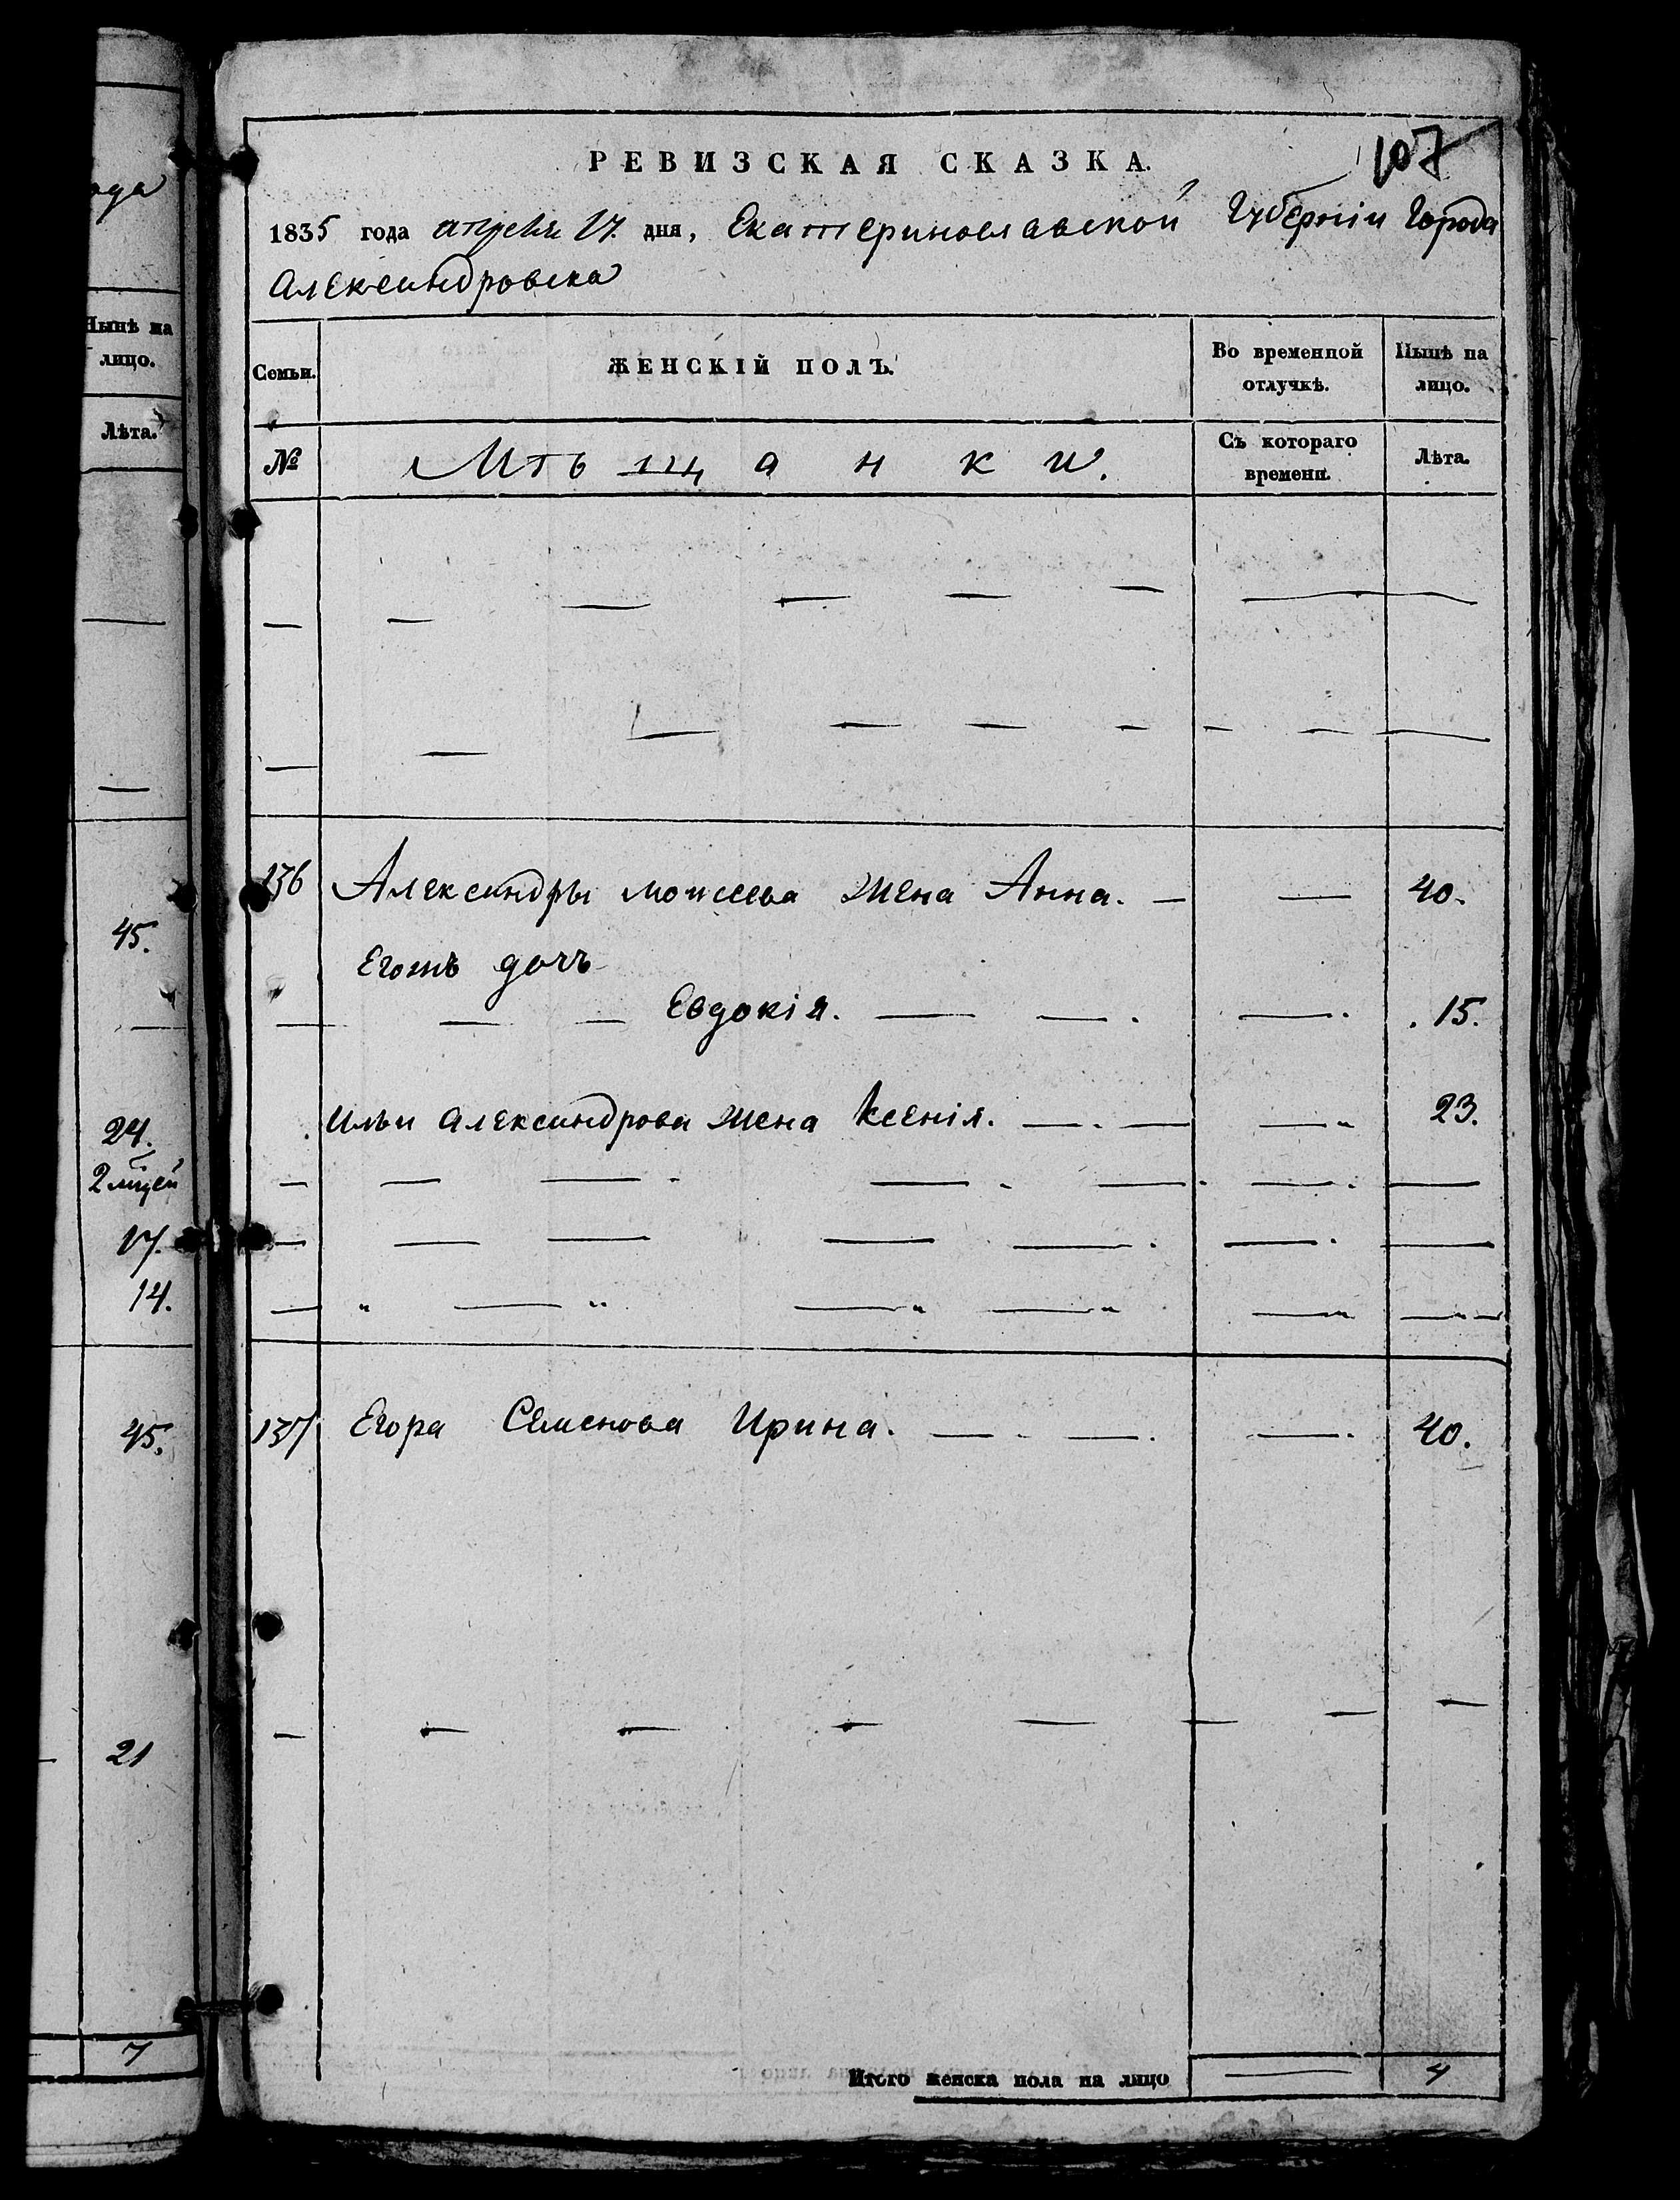 ода
Нынѣ на
лицо.
Лѣта.
45.
24.
17.
14.
45.
21
7
107
РЕВИЗСКАЯ СКАЗКА.
1835 года апреля 17. дня, Екатеринославской Губерніи Города
Александровска
Семьи.
ЖЕНСКІЙ ПОЛЪ.
Во временной
отлучкѣ.
Нынѣ на
лицо.
№
Мѣщанки.
Съ котораго
времени.
Лѣта.
136 Александры моисеева жена Анна. — — 40.
Егожъ дочъ
— — — Евдокія. — — . — . 15.
Ильи Александрова жена Ксенія. — . — — 23.
137 Егора Семенова Ирина. — . — . — . 40.
Итого женска пола на лицо — 4